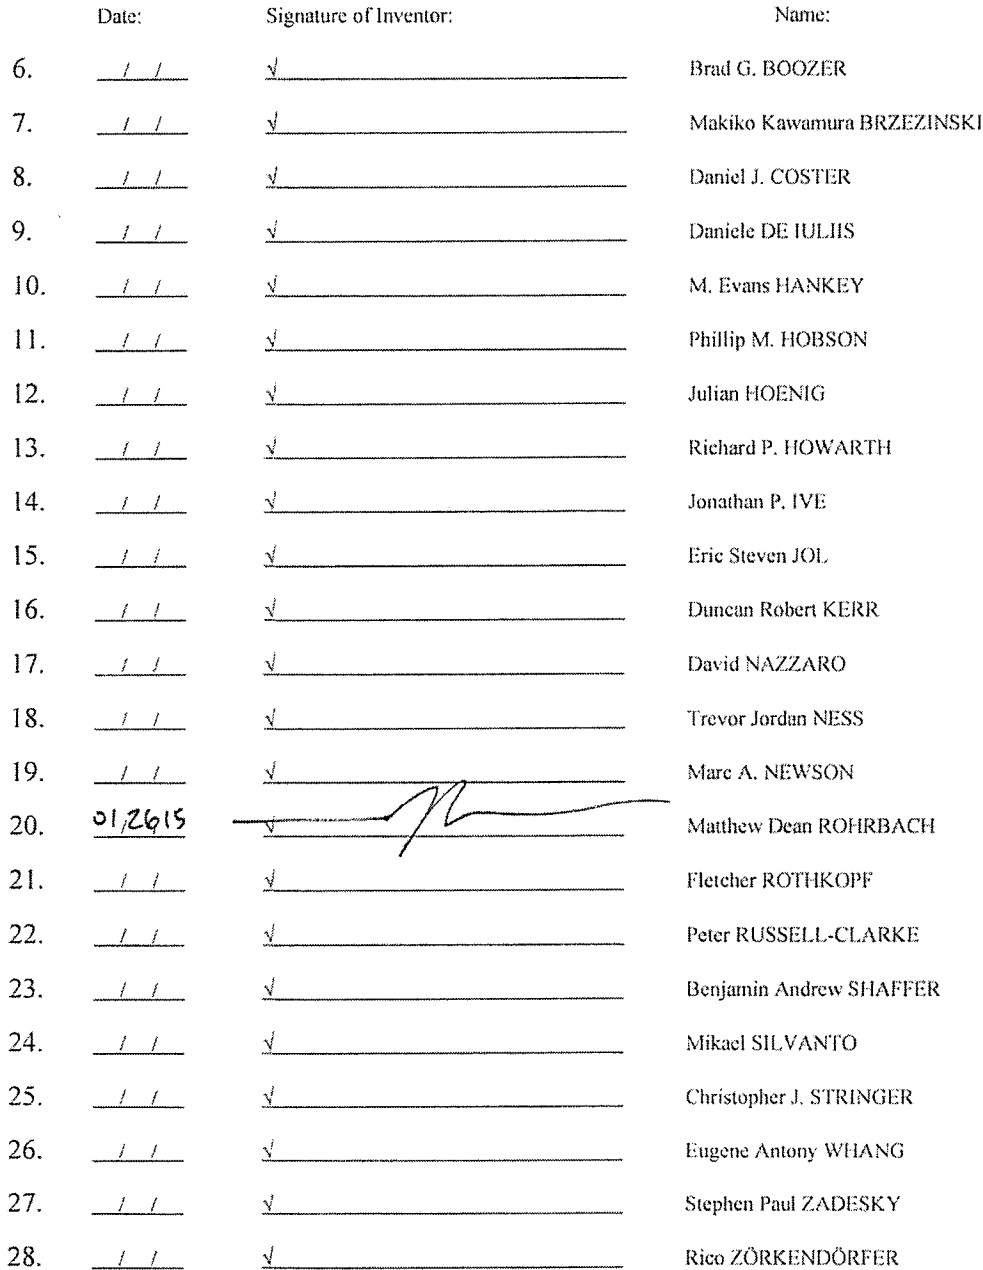 Date: Signature of Inventor: Name:
6. / / √ Brad G. BOOZER
7. / / √ Makiko Kawamura BRZEZINSKI
8. / / √ Daniel J. COSTER
9. / / √ Daniele DE IULIIS
10. / / √ M. Evans HANKEY
11. / / √ Phillip M. HOBSON
12. / / √ Julian HOENIG
13. / / √ Richard P. HOWARTH
14. / / √ Jonathan P. IVE
15. / / √ Eric Steven JOL
16. / / √ Duncan Robert KERR
17. / / √ David NAZZARO
18. / / √ Trevor Jordan NESS
19. / / √ Marc A. NEWSON
20. 01/26/15 √ Matthew Dean ROHRBACH
21. / / √ Fletcher ROTHKOPF
22. / / √ Peter RUSSELL-CLARKE
23. / / √ Benjamin Andrew SHAFFER
24. / / √ Mikael SILVANTO
25. / / √ Christopher J. STRINGER
26. / / √ Eugene Antony WHANG
27. / / √ Stephen Paul ZADESKY
28. / / √ Rico ZÖRKENDÖRFER